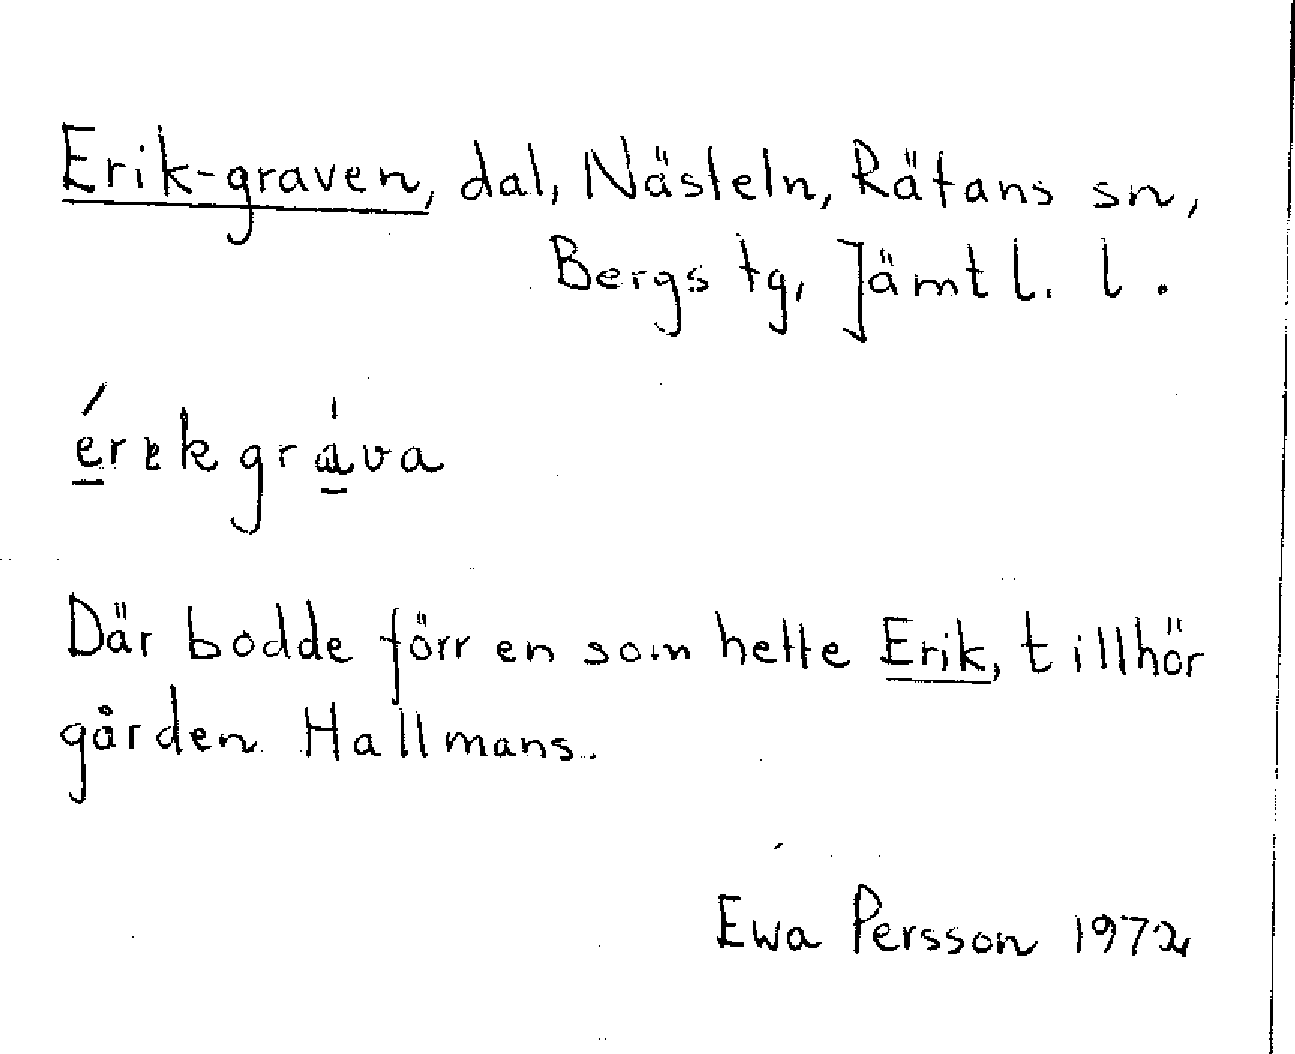 Erik-graven, dal, Nästeln, Rätans sn,
Bergs tg, Jämtl. l.
érɩkgráva
Där bodde förr en som hette Erik, tillhör
gården Hallmans.
Ewa Persson 1972